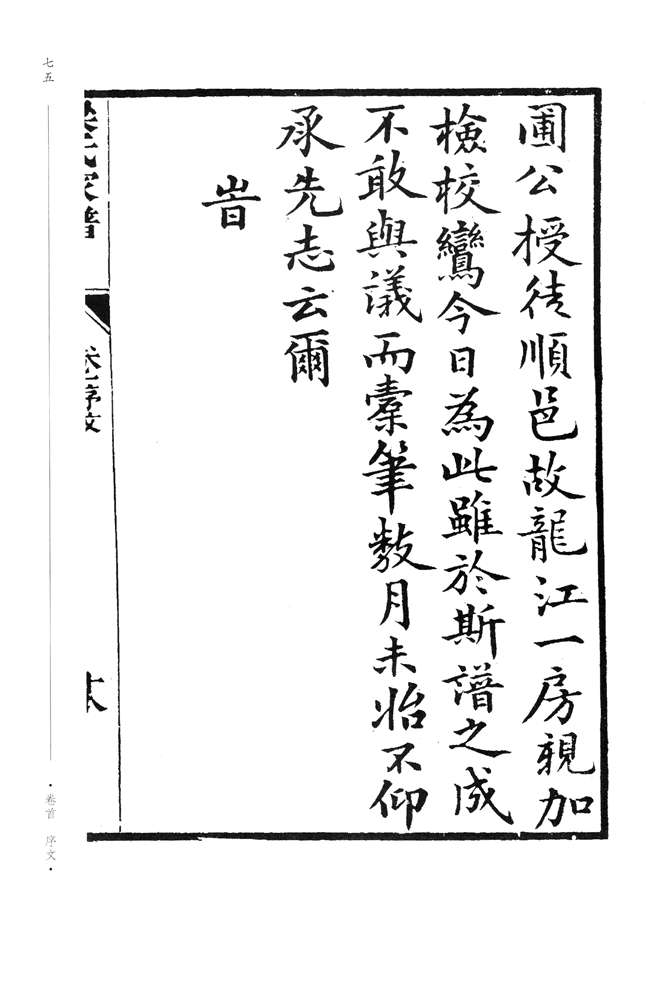 圃公授徒順邑故龍江一房親加
檢校鸞今日為此雖於斯譜之成
不敢與議而橐筆數月未始不仰
承先志云爾
旹
氏家譜
卷一序文
七五
·卷首 序文·